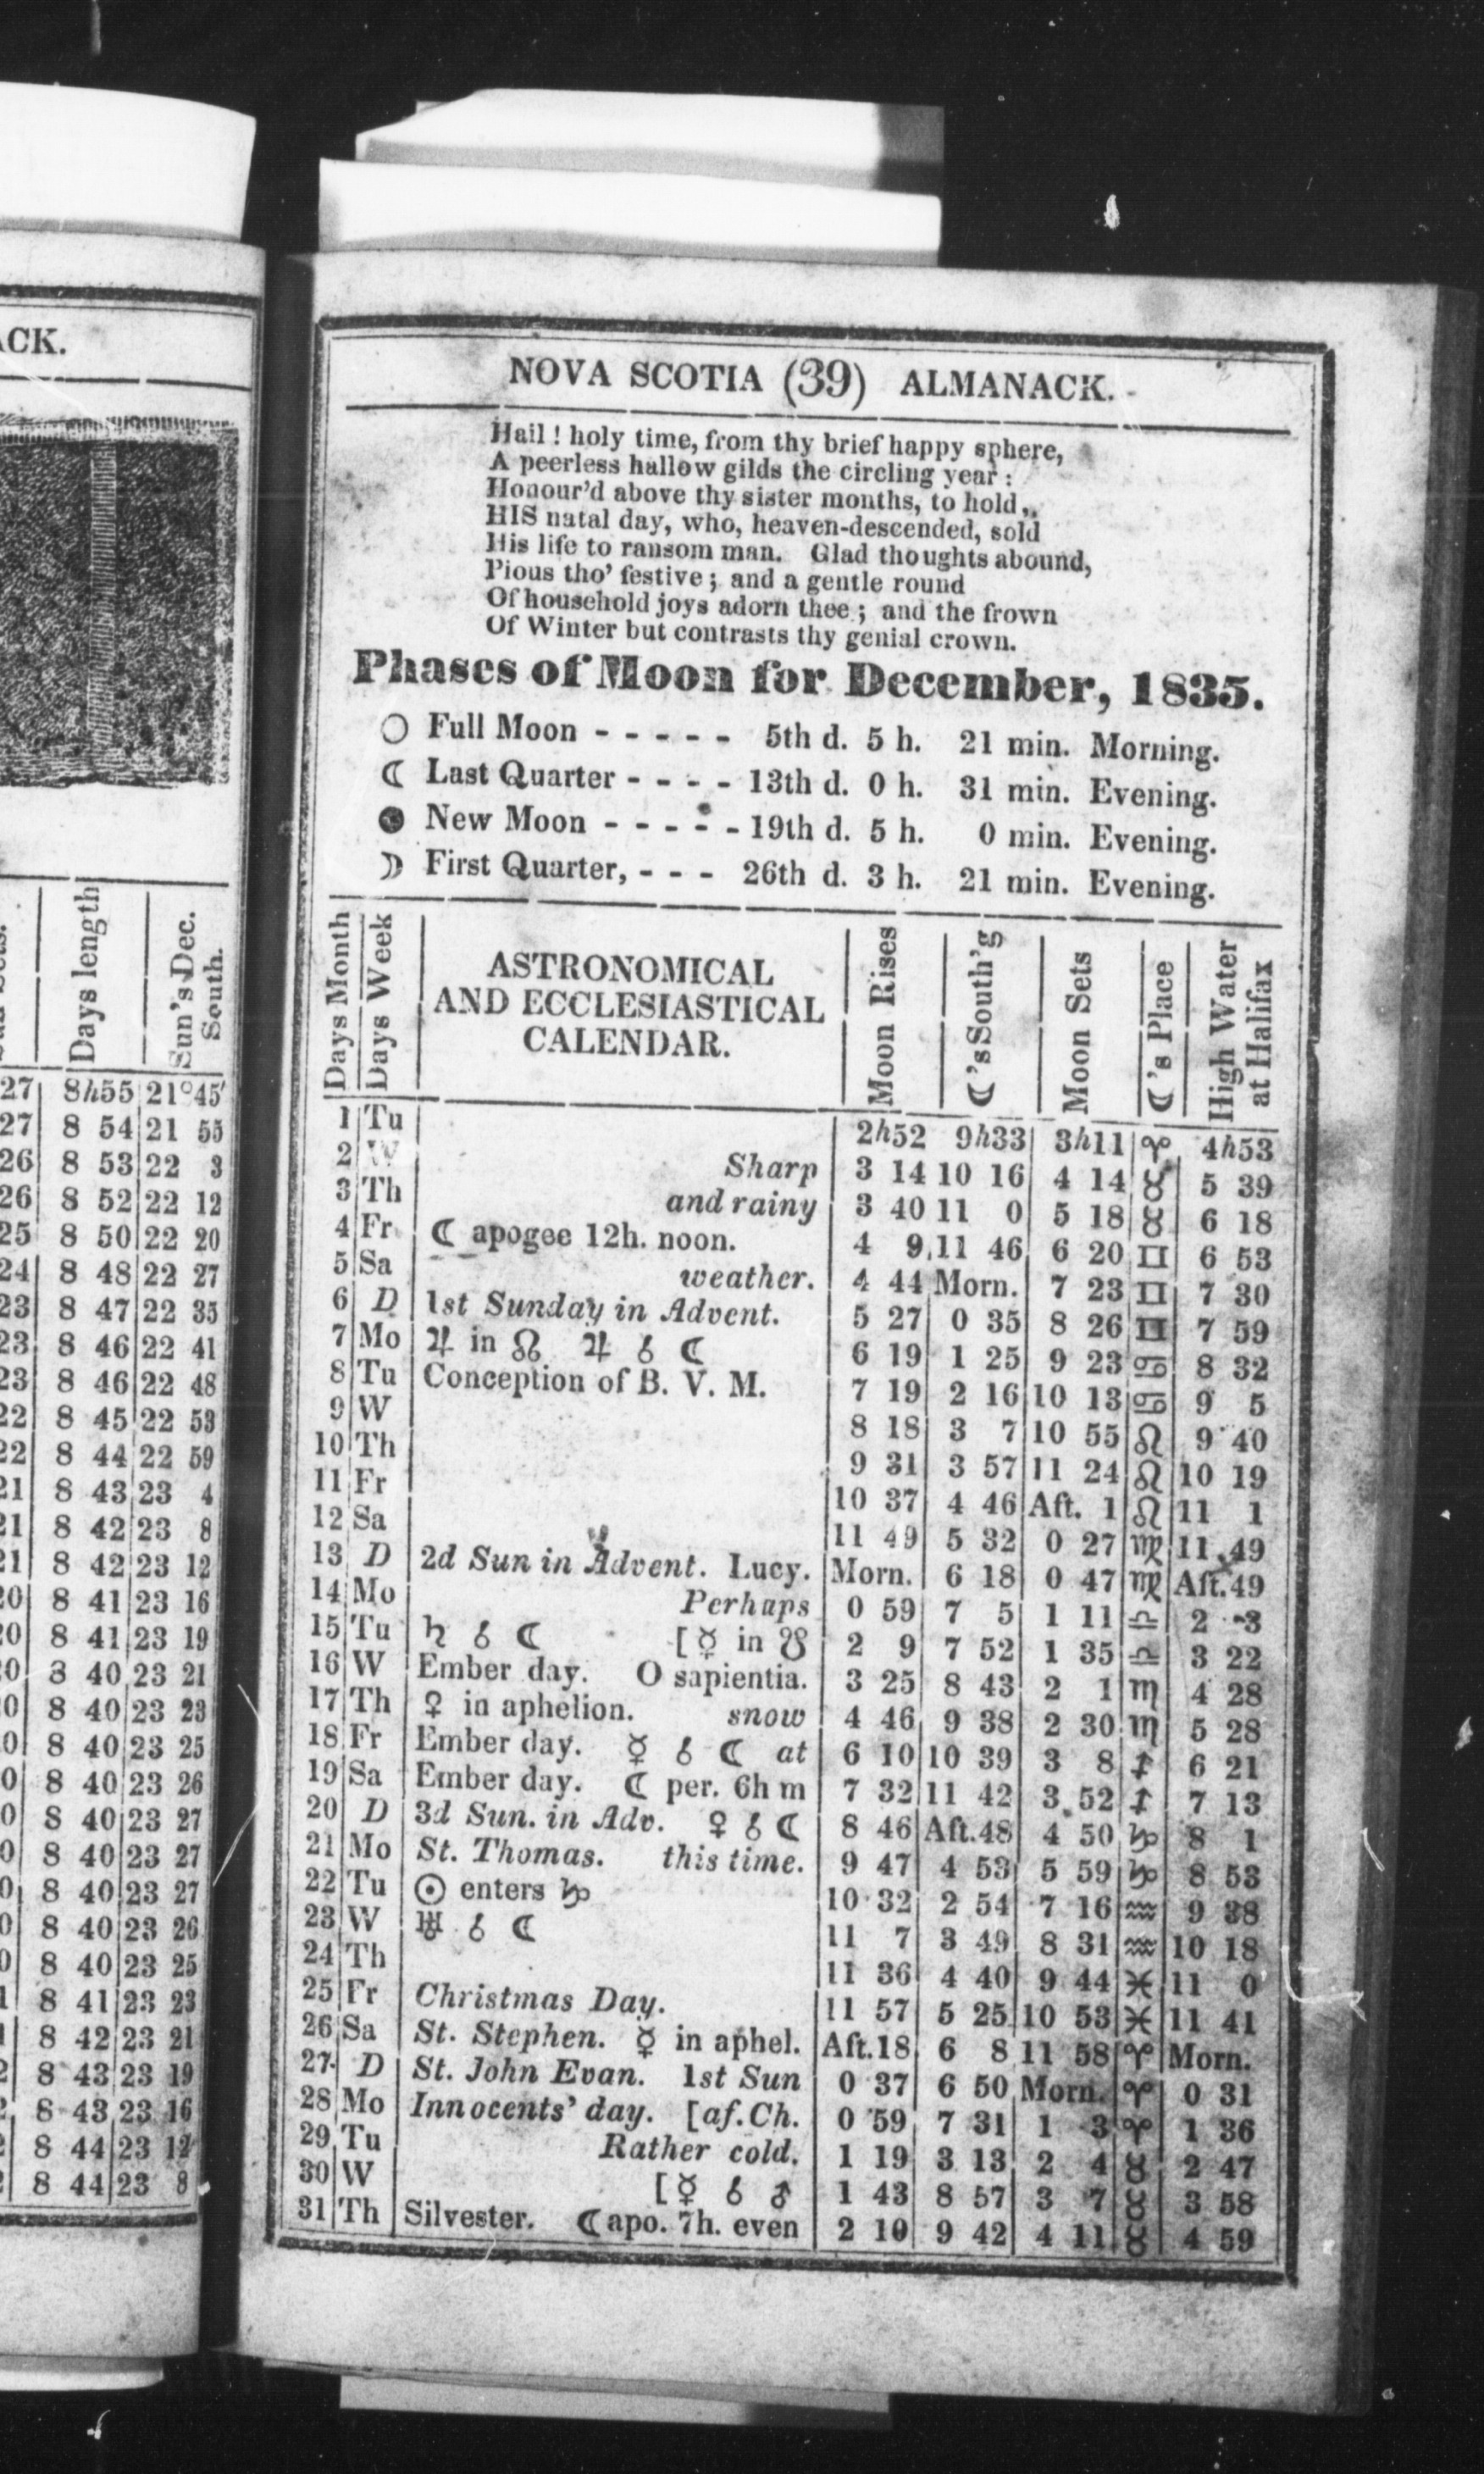 ACK.
Days length
Sun's Dec. South.
27 8h55 21°45'
27 8 54 21 55
26 8 53 22 3
26 8 52 22 12
25 8 50 22 20
24 8 48 22 27
23 8 47 22 35
23 8 46 22 41
23 8 46 22 48
22 8 45 22 53
22 8 44 22 59
21 8 43 23 4
21 8 42 23 8
21 8 42 23 12
20 8 41 23 16
20 8 41 23 19
0 8 40 23 21
0 8 40 23 23
0 8 40 23 25
0 8 40 23 26
0 8 40 23 27
0 8 40 23 27
0 8 40 23 27
0 8 40 23 26
0 8 40 23 25
1 8 41 23 23
1 8 42 23 21
2 8 43 23 19
2 8 43 23 16
2 8 44 23 12
2 8 44 23 8
NOVA SCOTIA (39) ALMANACK.
Hail ! holy time, from thy brief happy sphere,
A peerless hallow gilds the circling year :
Honour'd above thy sister months, to hold,
HIS natal day, who, heaven-descended, sold
His life to ransom man. Glad thoughts abound,
Pious tho' festive ; and a gentle round
Of household joys adorn thee ; and the frown
Of Winter but contrasts thy genial crown.
Phases of Moon for December, 1835.
○ Full Moon - - - - - 5th d. 5 h. 21 min. Morning.
☾ Last Quarter - - - - 13th d. 0 h. 31 min. Evening.
● New Moon - - - - - 19th d. 5 h. 0 min. Evening.
☽ First Quarter, - - - 26th d. 3 h. 21 min. Evening.
Days Month
Days Week
ASTRONOMICAL
AND ECCLESIASTICAL
CALENDAR.
Moon Rises
☾'s South'g
Moon Sets
☾'s Place
High Water
at Halifax
1 Tu 2h52 9h33 3h11 ♈ 4h53
2 W Sharp 3 14 10 16 4 14 ♉ 5 39
3 Th and rainy 3 40 11 0 5 18 ♉ 6 18
4 Fr ☾ apogee 12h. noon. 4 9 11 46 6 20 ♊ 6 53
5 Sa weather. 4 44 Morn. 7 23 ♊ 7 30
6 D 1st Sunday in Advent. 5 27 0 35 8 26 ♊ 7 59
7 Mo ♃ in ☊ ♃ ☌ ☾ 6 19 1 25 9 23 ♋ 8 32
8 Tu Conception of B. V. M. 7 19 2 16 10 13 ♋ 9 5
9 W 8 18 3 7 10 55 ♌ 9 40
10 Th 9 31 3 57 11 24 ♌ 10 19
11 Fr 10 37 4 46 Aft. 1 ♌ 11 1
12 Sa 11 49 5 32 0 27 ♍ 11 49
13 D 2d Sun in Advent. Lucy. Morn. 6 18 0 47 ♍ Aft.49
14 Mo Perhaps 0 59 7 5 1 11 ♎ 2 3
15 Tu ♄ ☌ ☾ [☿ in ☋ 2 9 7 52 1 35 ♎ 3 22
16 W Ember day. O sapientia. 3 25 8 43 2 1 ♏ 4 28
17 Th ♀ in aphelion. snow 4 46 9 38 2 30 ♏ 5 28
18 Fr Ember day. ☿ ☌ ☾ at 6 10 10 39 3 8 ♐ 6 21
19 Sa Ember day. ☾ per. 6h m 7 32 11 42 3 52 ♐ 7 13
20 D 3d Sun. in Adv. ♀ ☌ ☾ 8 46 Aft.48 4 50 ♑ 8 1
21 Mo St. Thomas. this time. 9 47 4 53 5 59 ♑ 8 53
22 Tu ☉ enters ♑ 10 32 2 54 7 16 ♒ 9 38
23 W ♅ ☌ ☾ 11 7 3 49 8 31 ♒ 10 18
24 Th 11 36 4 40 9 44 ♓ 11 0
25 Fr Christmas Day. 11 57 5 25 10 53 ♓ 11 41
26 Sa St. Stephen. ☿ in aphel. Aft.18 6 8 11 58 ♈ Morn.
27 D St. John Evan. 1st Sun 0 37 6 50 Morn. ♈ 0 31
28 Mo Innocents' day. [af.Ch. 0 59 7 31 1 3 ♈ 1 36
29 Tu Rather cold. 1 19 3 13 2 4 ♉ 2 47
30 W [☿ ☌ ♂ 1 43 8 57 3 7 ♉ 3 58
31 Th Silvester. ☾apo. 7h. even 2 10 9 42 4 11 ♉ 4 59